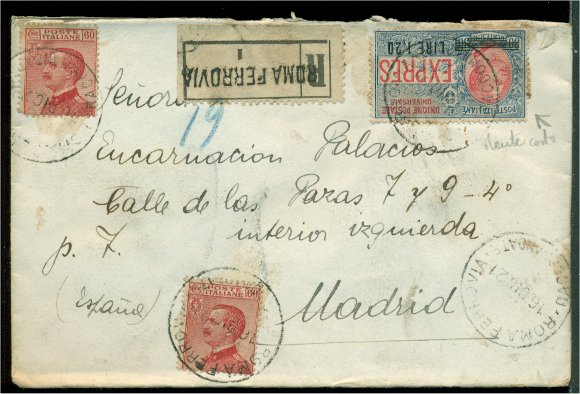 Cent 60
POSTE
ITALIANE
R
ROMA FERROVIA
1
EXPRÈS
LIRE 1,20
UNIONE POSTALE
UNIVERSALE
POSTE ITALIANE
19
Señora
Encarnacion Palacios
Calle de las Pozas 7 y 9-4º
p. 7. interior izquierda
(España)
Madrid
Cent 60
POSTE
ITALIANE
ROMA FERROVIA
ROMA FERROVIA